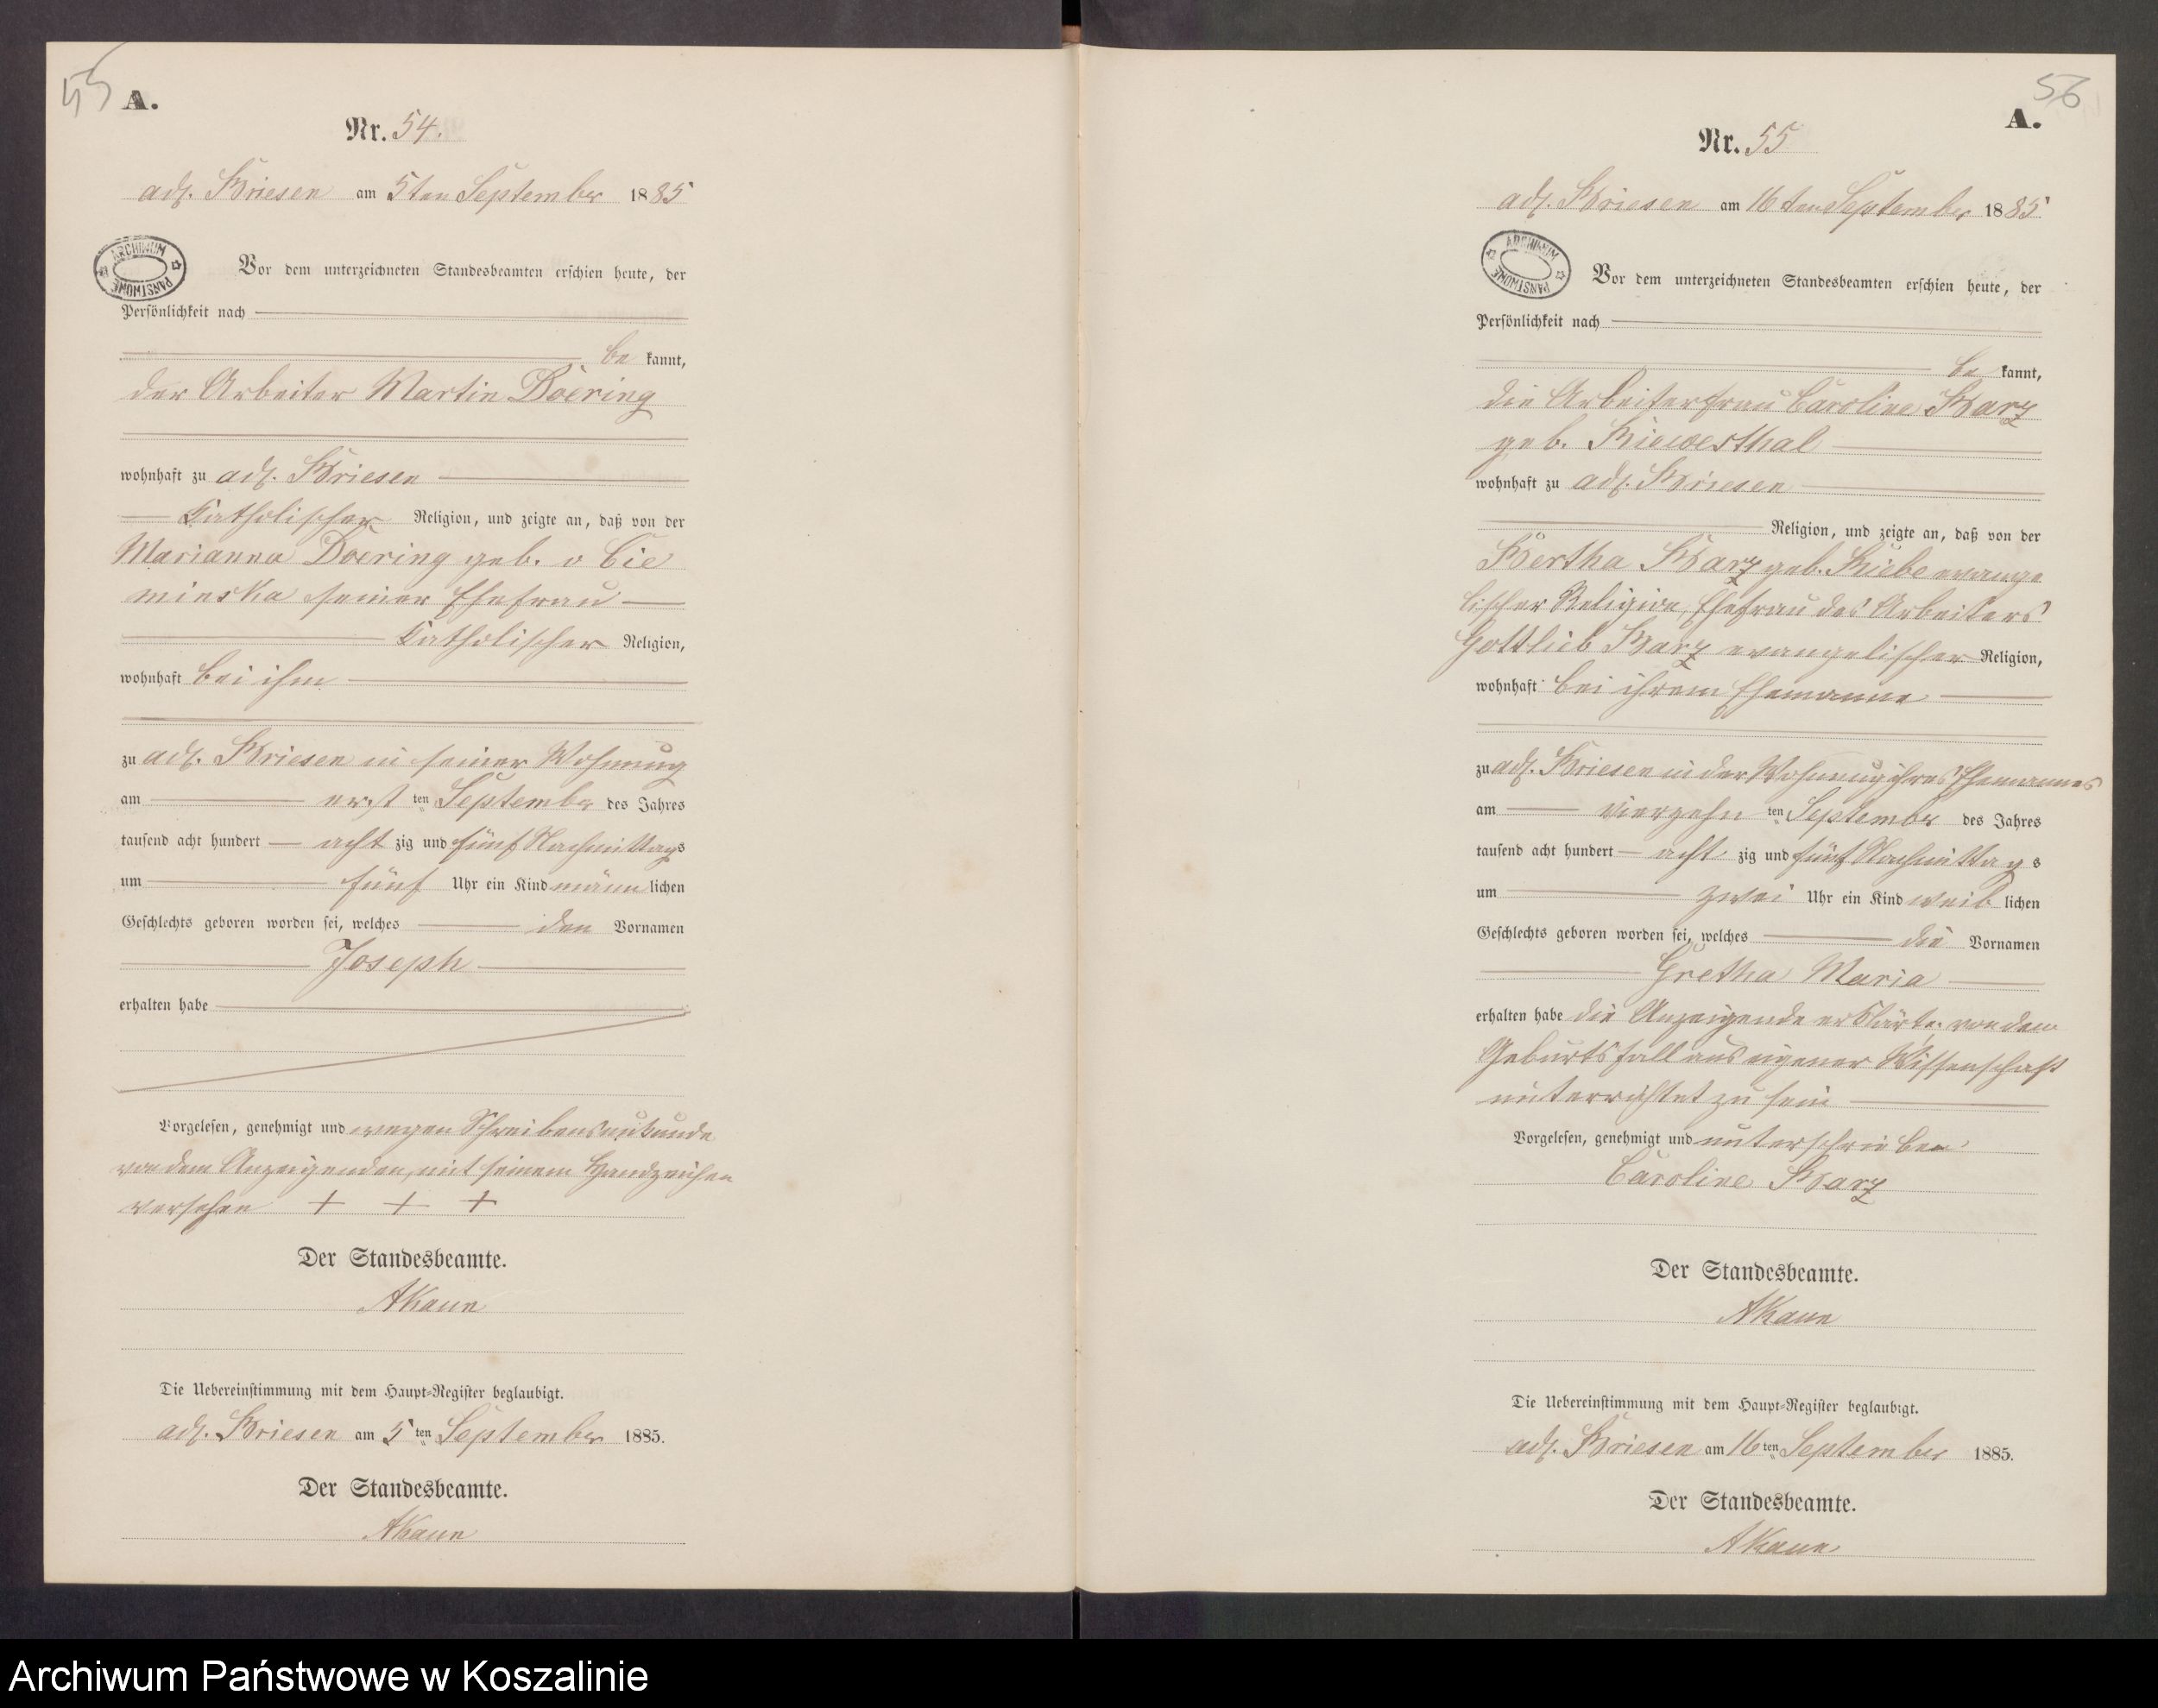 55
A.
Nr. 54.
adl. Briesen am 5ten September 1885
ARCHIWUM PAŃSTWOWE
Vor dem unterzeichneten Standesbeamten erschien heute, der
Persönlichkeit nach
be kannt,
der Arbeiter Martin Doering
wohnhaft zu adl. Briesen
katholischer Religion, und zeigte an, daß von der
Marianna Doering geb. v Cie
minska seiner Ehefrau
katholischer Religion,
wohnhaft bei ihm
zu adl. Briesen in seiner Wohnung
am erst ten September des Jahres
tausend acht hundert acht zig und fünf Nachmittags
um fünf Uhr ein Kind männlichen
Geschlechts geboren worden sei, welches den Vornamen
Joseph
erhalten habe
Vorgelesen, genehmigt und wegen Schreibensunkunde
von dem Anzeigenden, mit seinem Handzeichen
versehen + + +
Der Standesbeamte.
AKaun
Die Uebereinstimmung mit dem Haupt-Register beglaubigt.
adl. Briesen am 5ten September 1885.
Der Standesbeamte.
AKaun
56
A.
Nr. 55
adl. Briesen am 16ten September 1885
ARCHIWUM PAŃSTWOWE
Vor dem unterzeichneten Standesbeamten erschien heute, der
Persönlichkeit nach
be kannt,
die Arbeiterfrau Caroline Barz
geb.
wohnhaft zu adl. Briesen
Religion, und zeigte an, daß von der
Bertha Barz geb. evange
lischer Religion, Ehefrau des Arbeiters
Gottlieb Barz evangelischer Religion,
wohnhaft bei ihrem Ehemanne
zu adl. Briesen in der Wohnung ihres Ehemannes
am vierzehn ten September des Jahres
tausend acht hundert acht zig und fünf Nachmittags
um zwei Uhr ein Kind weiblichen
Geschlechts geboren worden sei, welches die Vornamen
Gretha Maria
erhalten habe die Anzeigende erklärte, von dem
Geburtsfall aus eigener Wissenschaft
unterrichtet zu sein
Vorgelesen, genehmigt und unterschrieben
Caroline Barz
Der Standesbeamte.
AKaun
Die Uebereinstimmung mit dem Haupt-Register beglaubigt.
adl. Briesen am 16ten September 1885.
Der Standesbeamte.
AKaun
Archiwum Państwowe w Koszalinie